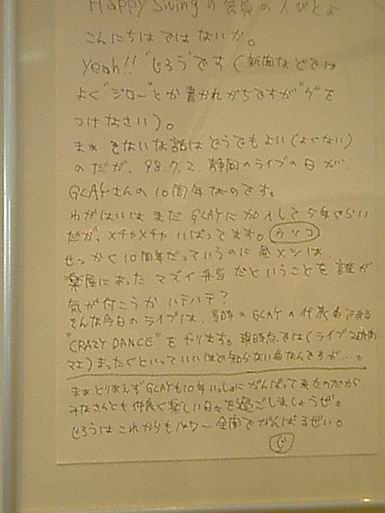 Happy Swingの会員の人びとよ
こんにちはではないか。
Yeah!! "じろう"です(新聞などでは
よく"ジロー"とか書かれがちですが"ヴ"を
つけなさい)。
まぁ そないな話はどうでもよい(よくない)
のだが、98.7.2. 静岡のライブの日が、
GLAYさんの10周年なのです。
わがはいはまだGLAYに加入して5年ぐらい
だが、メチャメチャいばってます。ウソコ
せっかく10周年だっていうのに昼メシは、
楽屋にあったマズイ弁当だということを誰が
気が付こうか ハテハテ?
そんな今日のライブは、当時のGLAYの代表曲である
"CRAZY DANCE"をやります。現時点では(ライブ2時間
マエ)まったくといっていいほど知らない曲なんですが…。
まぁとりあえずGLAYも10年いっしょにがんばって来たのだから
みなさんとも仲良く楽しい日々を過ごしましょうぜ。
じろうはこれからもパワー全開でがんばるぜい。
じ